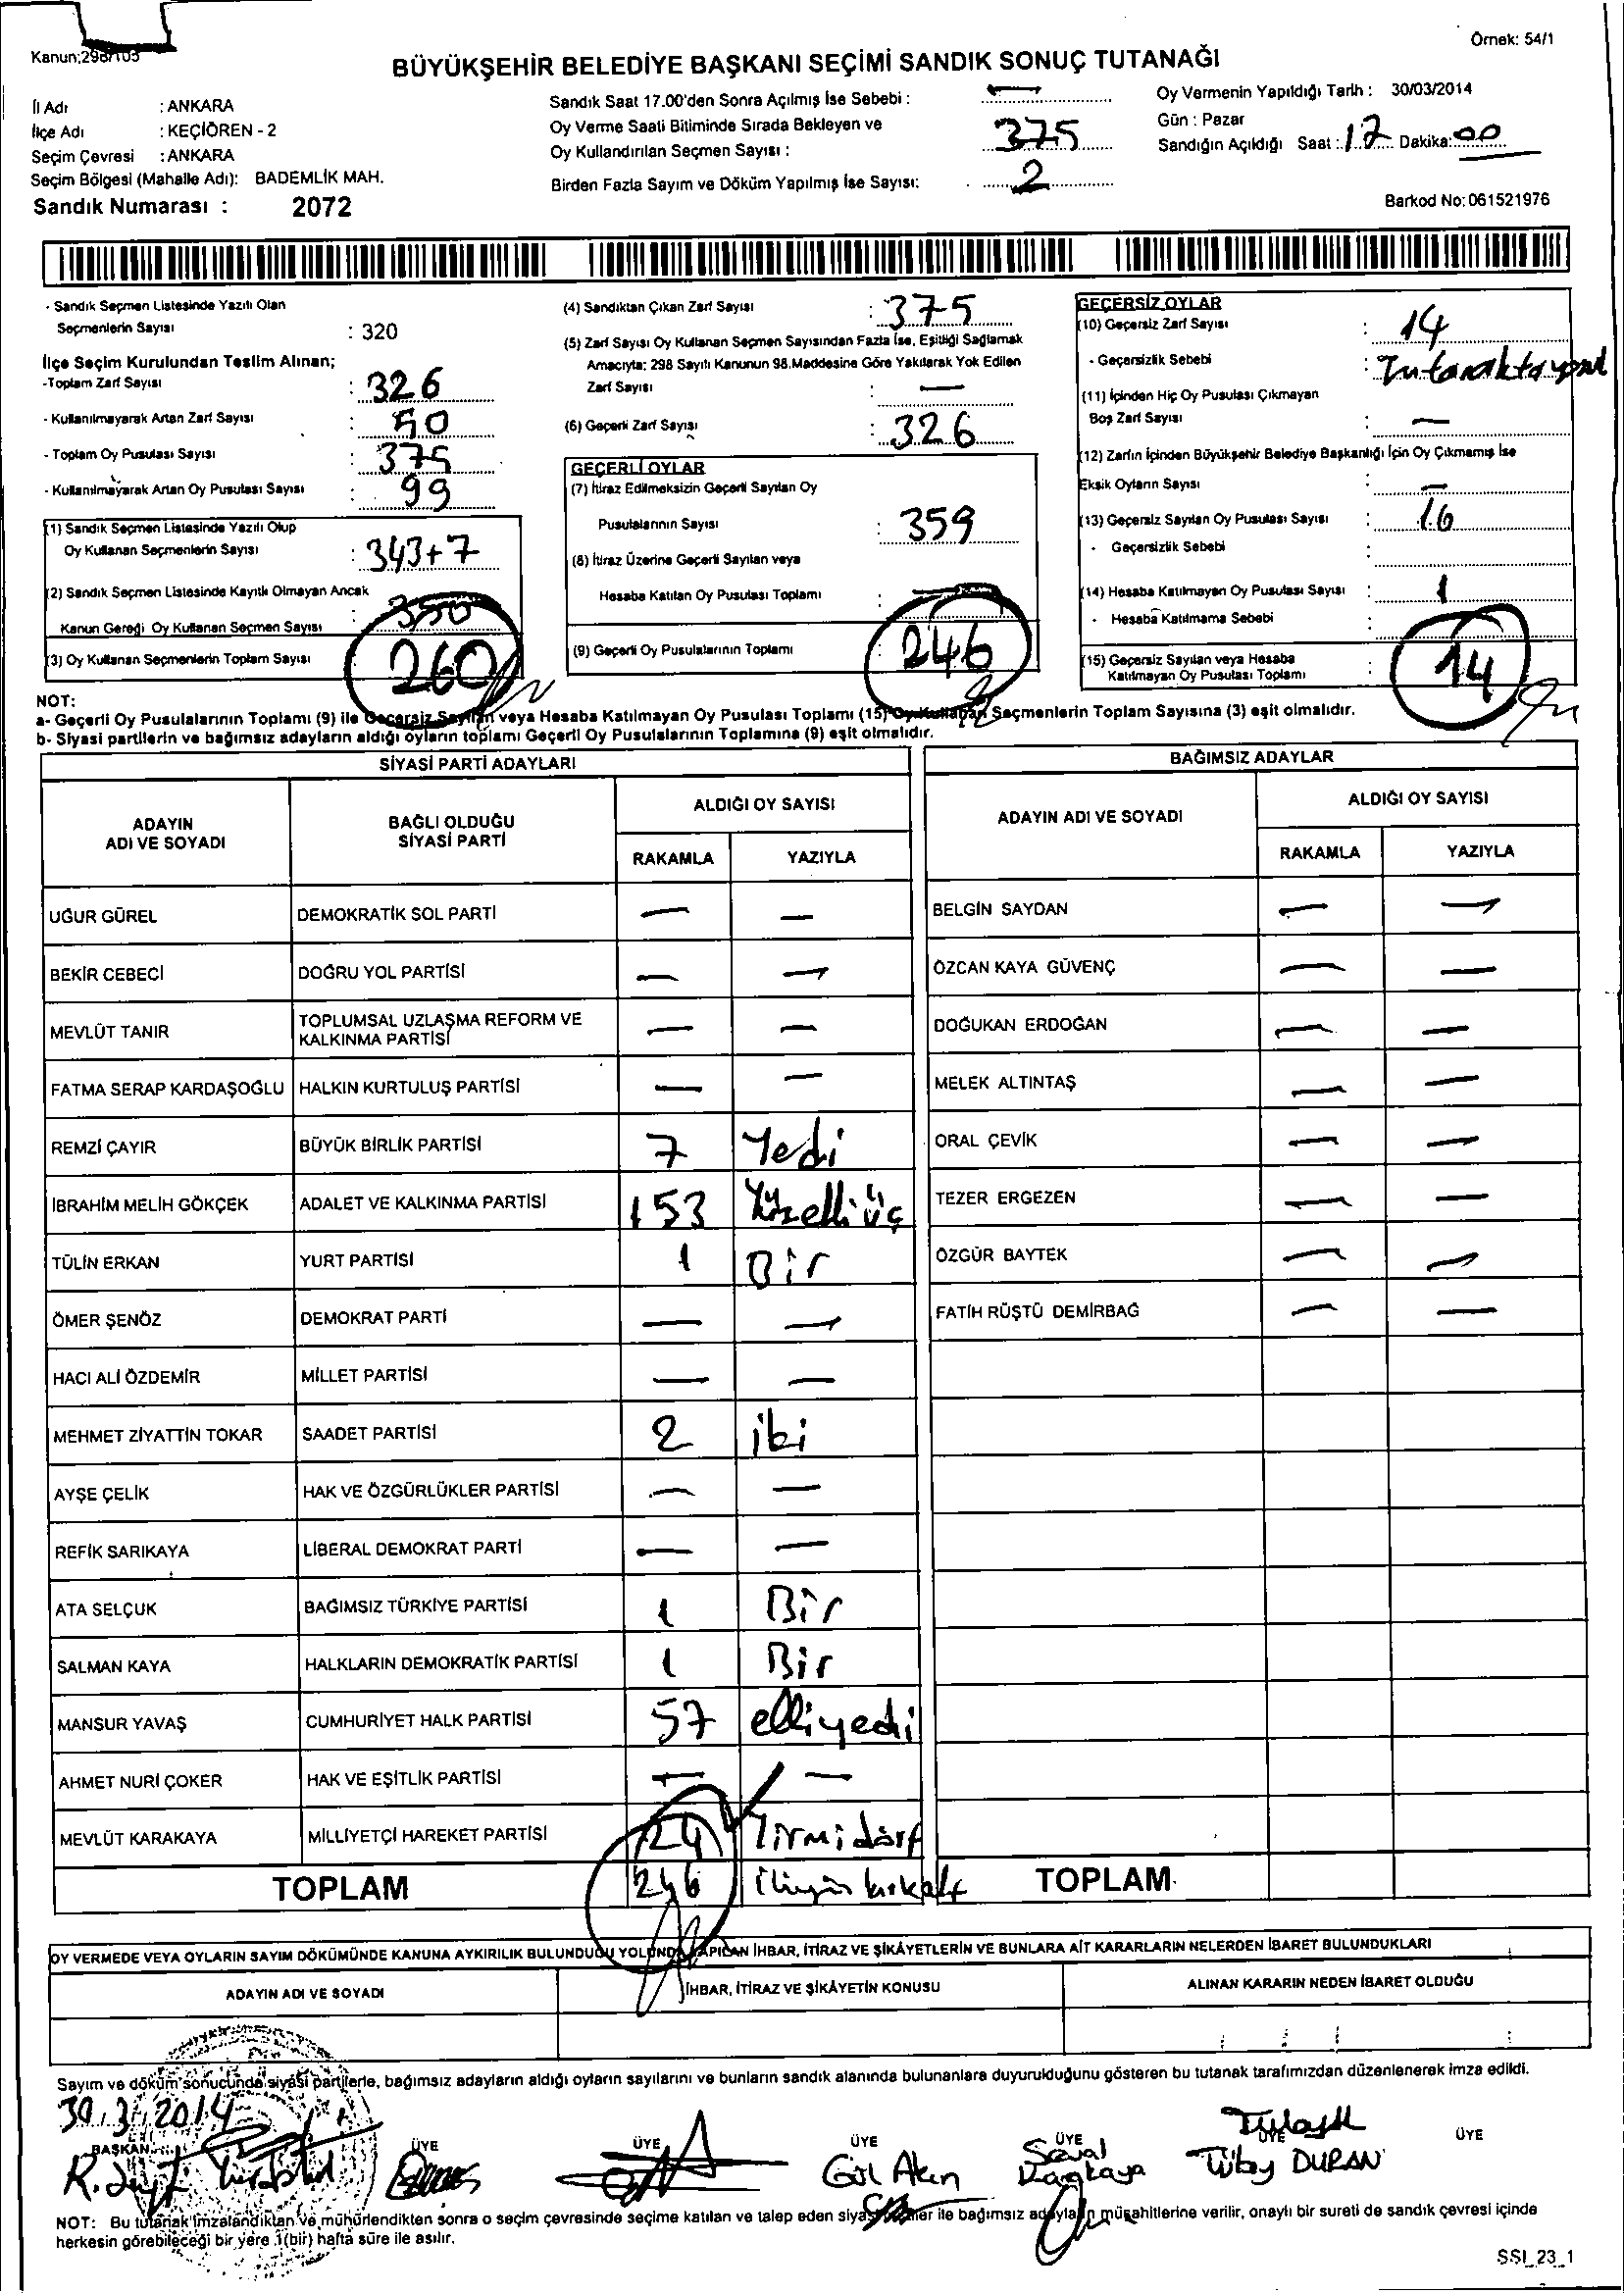 Örnek: 54/1
BÜYÜKŞEHİR BELEDİYE BAŞKANI SEÇİMİ SANDIK SONUÇ TUTANAĞI
İl Adı : ANKARA
İlçe Adı : KEÇİÖREN - 2
Seçim Çevresi : ANKARA
Seçim Bölgesi (Mahalle Adı): BADEMLİK MAH.
Sandık Numarası : 2072
Sandık Saat 17.00'den Sonra Açılmış İse Sebebi : —
Oy Verme Saati Bitiminde Sırada Bekleyen ve
Oy Kullandırılan Seçmen Sayısı : 375
Birden Fazla Sayım ve Döküm Yapılmış İse Sayısı: 2
Oy Vermenin Yapıldığı Tarih : 30/03/2014
Gün : Pazar
Sandığın Açıldığı Saat : 17 Dakika: 00
Barkod No: 061521976
- Sandık Seçmen Listesinde Yazılı Olan
Seçmenlerin Sayısı : 320
İlçe Seçim Kurulundan Teslim Alınan;
-Toplam Zarf Sayısı : 326
- Kullanılmayarak Artan Zarf Sayısı : 50
- Toplam Oy Pusulası Sayısı : 375
- Kullanılmayarak Artan Oy Pusulası Sayısı : 99
(1) Sandık Seçmen Listesinde Yazılı Olup
Oy Kullanan Seçmenlerin Sayısı : 343+7
(2) Sandık Seçmen Listesinde Kayıtlı Olmayan Ancak
Kanun Gereği Oy Kullanan Seçmen Sayısı : 350
(3) Oy Kullanan Seçmenlerin Toplam Sayısı : 260
(4) Sandıktan Çıkan Zarf Sayısı : 375
(5) Zarf Sayısı Oy Kullanan Seçmen Sayısından Fazla İse, Eşitliği Sağlamak
Amacıyla: 298 Sayılı Kanunun 98.Maddesine Göre Yakılarak Yok Edilen
Zarf Sayısı : —
(6) Geçerli Zarf Sayısı : 326
GEÇERLİ OYLAR
(7) İtiraz Edilmeksizin Geçerli Sayılan Oy
Pusulalarının Sayısı : 359
(8) İtiraz Üzerine Geçerli Sayılan veya
Hesaba Katılan Oy Pusulası Toplamı :
(9) Geçerli Oy Pusulalarının Toplamı 246
GEÇERSİZ OYLAR
(10) Geçersiz Zarf Sayısı : 14
- Geçersizlik Sebebi :
(11) İçinden Hiç Oy Pusulası Çıkmayan
Boş Zarf Sayısı : —
(12) Zarfın İçinden Büyükşehir Belediye Başkanlığı İçin Oy Çıkmamış İse
Eksik Oyların Sayısı : —
(13) Geçersiz Sayılan Oy Pusulası Sayısı : 16
- Geçersizlik Sebebi :
(14) Hesaba Katılmayan Oy Pusulası Sayısı : 1
- Hesaba Katılmama Sebebi :
(15) Geçersiz Sayılan veya Hesaba
Katılmayan Oy Pusulası Toplamı : 14
NOT:
a- Geçerli Oy Pusulalarının Toplamı (9) ile Geçersiz Sayılan veya Hesaba Katılmayan Oy Pusulası Toplamı (15) Oy Kullanan Seçmenlerin Toplam Sayısına (3) eşit olmalıdır.
b- Siyasi partilerin ve bağımsız adayların aldığı oyların toplamı Geçerli Oy Pusulalarının Toplamına (9) eşit olmalıdır.
SİYASİ PARTİ ADAYLARI
ADAYIN ADI VE SOYADI BAĞLI OLDUĞU SİYASİ PARTİ ALDIĞI OY SAYISI
RAKAMLA YAZIYLA
UĞUR GÜREL DEMOKRATİK SOL PARTİ — —
BEKİR CEBECİ DOĞRU YOL PARTİSİ — —
MEVLÜT TANIR TOPLUMSAL UZLAŞMA REFORM VE KALKINMA PARTİSİ — —
FATMA SERAP KARDAŞOĞLU HALKIN KURTULUŞ PARTİSİ — —
REMZİ ÇAYIR BÜYÜK BİRLİK PARTİSİ 7 Yedi
İBRAHİM MELİH GÖKÇEK ADALET VE KALKINMA PARTİSİ 153 Yüzelliüç
TÜLİN ERKAN YURT PARTİSİ 1 Bir
ÖMER ŞENÖZ DEMOKRAT PARTİ — —
HACI ALİ ÖZDEMİR MİLLET PARTİSİ — —
MEHMET ZİYATTİN TOKAR SAADET PARTİSİ 2 iki
AYŞE ÇELİK HAK VE ÖZGÜRLÜKLER PARTİSİ — —
REFİK SARIKAYA LİBERAL DEMOKRAT PARTİ — —
ATA SELÇUK BAĞIMSIZ TÜRKİYE PARTİSİ 1 Bir
SALMAN KAYA HALKLARIN DEMOKRATİK PARTİSİ 1 Bir
MANSUR YAVAŞ CUMHURİYET HALK PARTİSİ 57 elliyedi
AHMET NURİ ÇOKER HAK VE EŞİTLİK PARTİSİ — —
MEVLÜT KARAKAYA MİLLİYETÇİ HAREKET PARTİSİ 24 Yirmidört
TOPLAM 246
BAĞIMSIZ ADAYLAR
ADAYIN ADI VE SOYADI ALDIĞI OY SAYISI
RAKAMLA YAZIYLA
BELGİN SAYDAN — —
ÖZCAN KAYA GÜVENÇ — —
DOĞUKAN ERDOĞAN — —
MELEK ALTINTAŞ — —
ORAL ÇEVİK — —
TEZER ERGEZEN — —
ÖZGÜR BAYTEK — —
FATİH RÜŞTÜ DEMİRBAĞ — —
TOPLAM
OY VERMEDE VEYA OYLARIN SAYIM DÖKÜMÜNDE KANUNA AYKIRILIK BULUNDUĞU YOLUNDA YAPILAN İHBAR, İTİRAZ VE ŞİKÂYETLERİN VE BUNLARA AİT KARARLARIN NELERDEN İBARET BULUNDUKLARI
ADAYIN ADI VE SOYADI İHBAR, İTİRAZ VE ŞİKÂYETİN KONUSU ALINAN KARARIN NEDEN İBARET OLDUĞU
Sayım ve döküm sonucunda siyasi partilerle, bağımsız adayların aldığı oyların sayılarını ve bunların sandık alanında bulunanlara duyurulduğunu gösteren bu tutanak tarafımızdan düzenlenerek imza edildi.
30.3.2014
BAŞKAN ÜYE ÜYE ÜYE ÜYE ÜYE ÜYE
Gül Akın
Tülay DURAN
NOT: Bu tutanak imzalandıktan ve mühürlendikten sonra o seçim çevresinde seçime katılan ve talep eden siyasi partiler ile bağımsız adayların müşahitlerine verilir, onaylı bir sureti de sandık çevresi içinde
herkesin görebileceği bir yere 1(bir) hafta süre ile asılır.
SSI_23_1